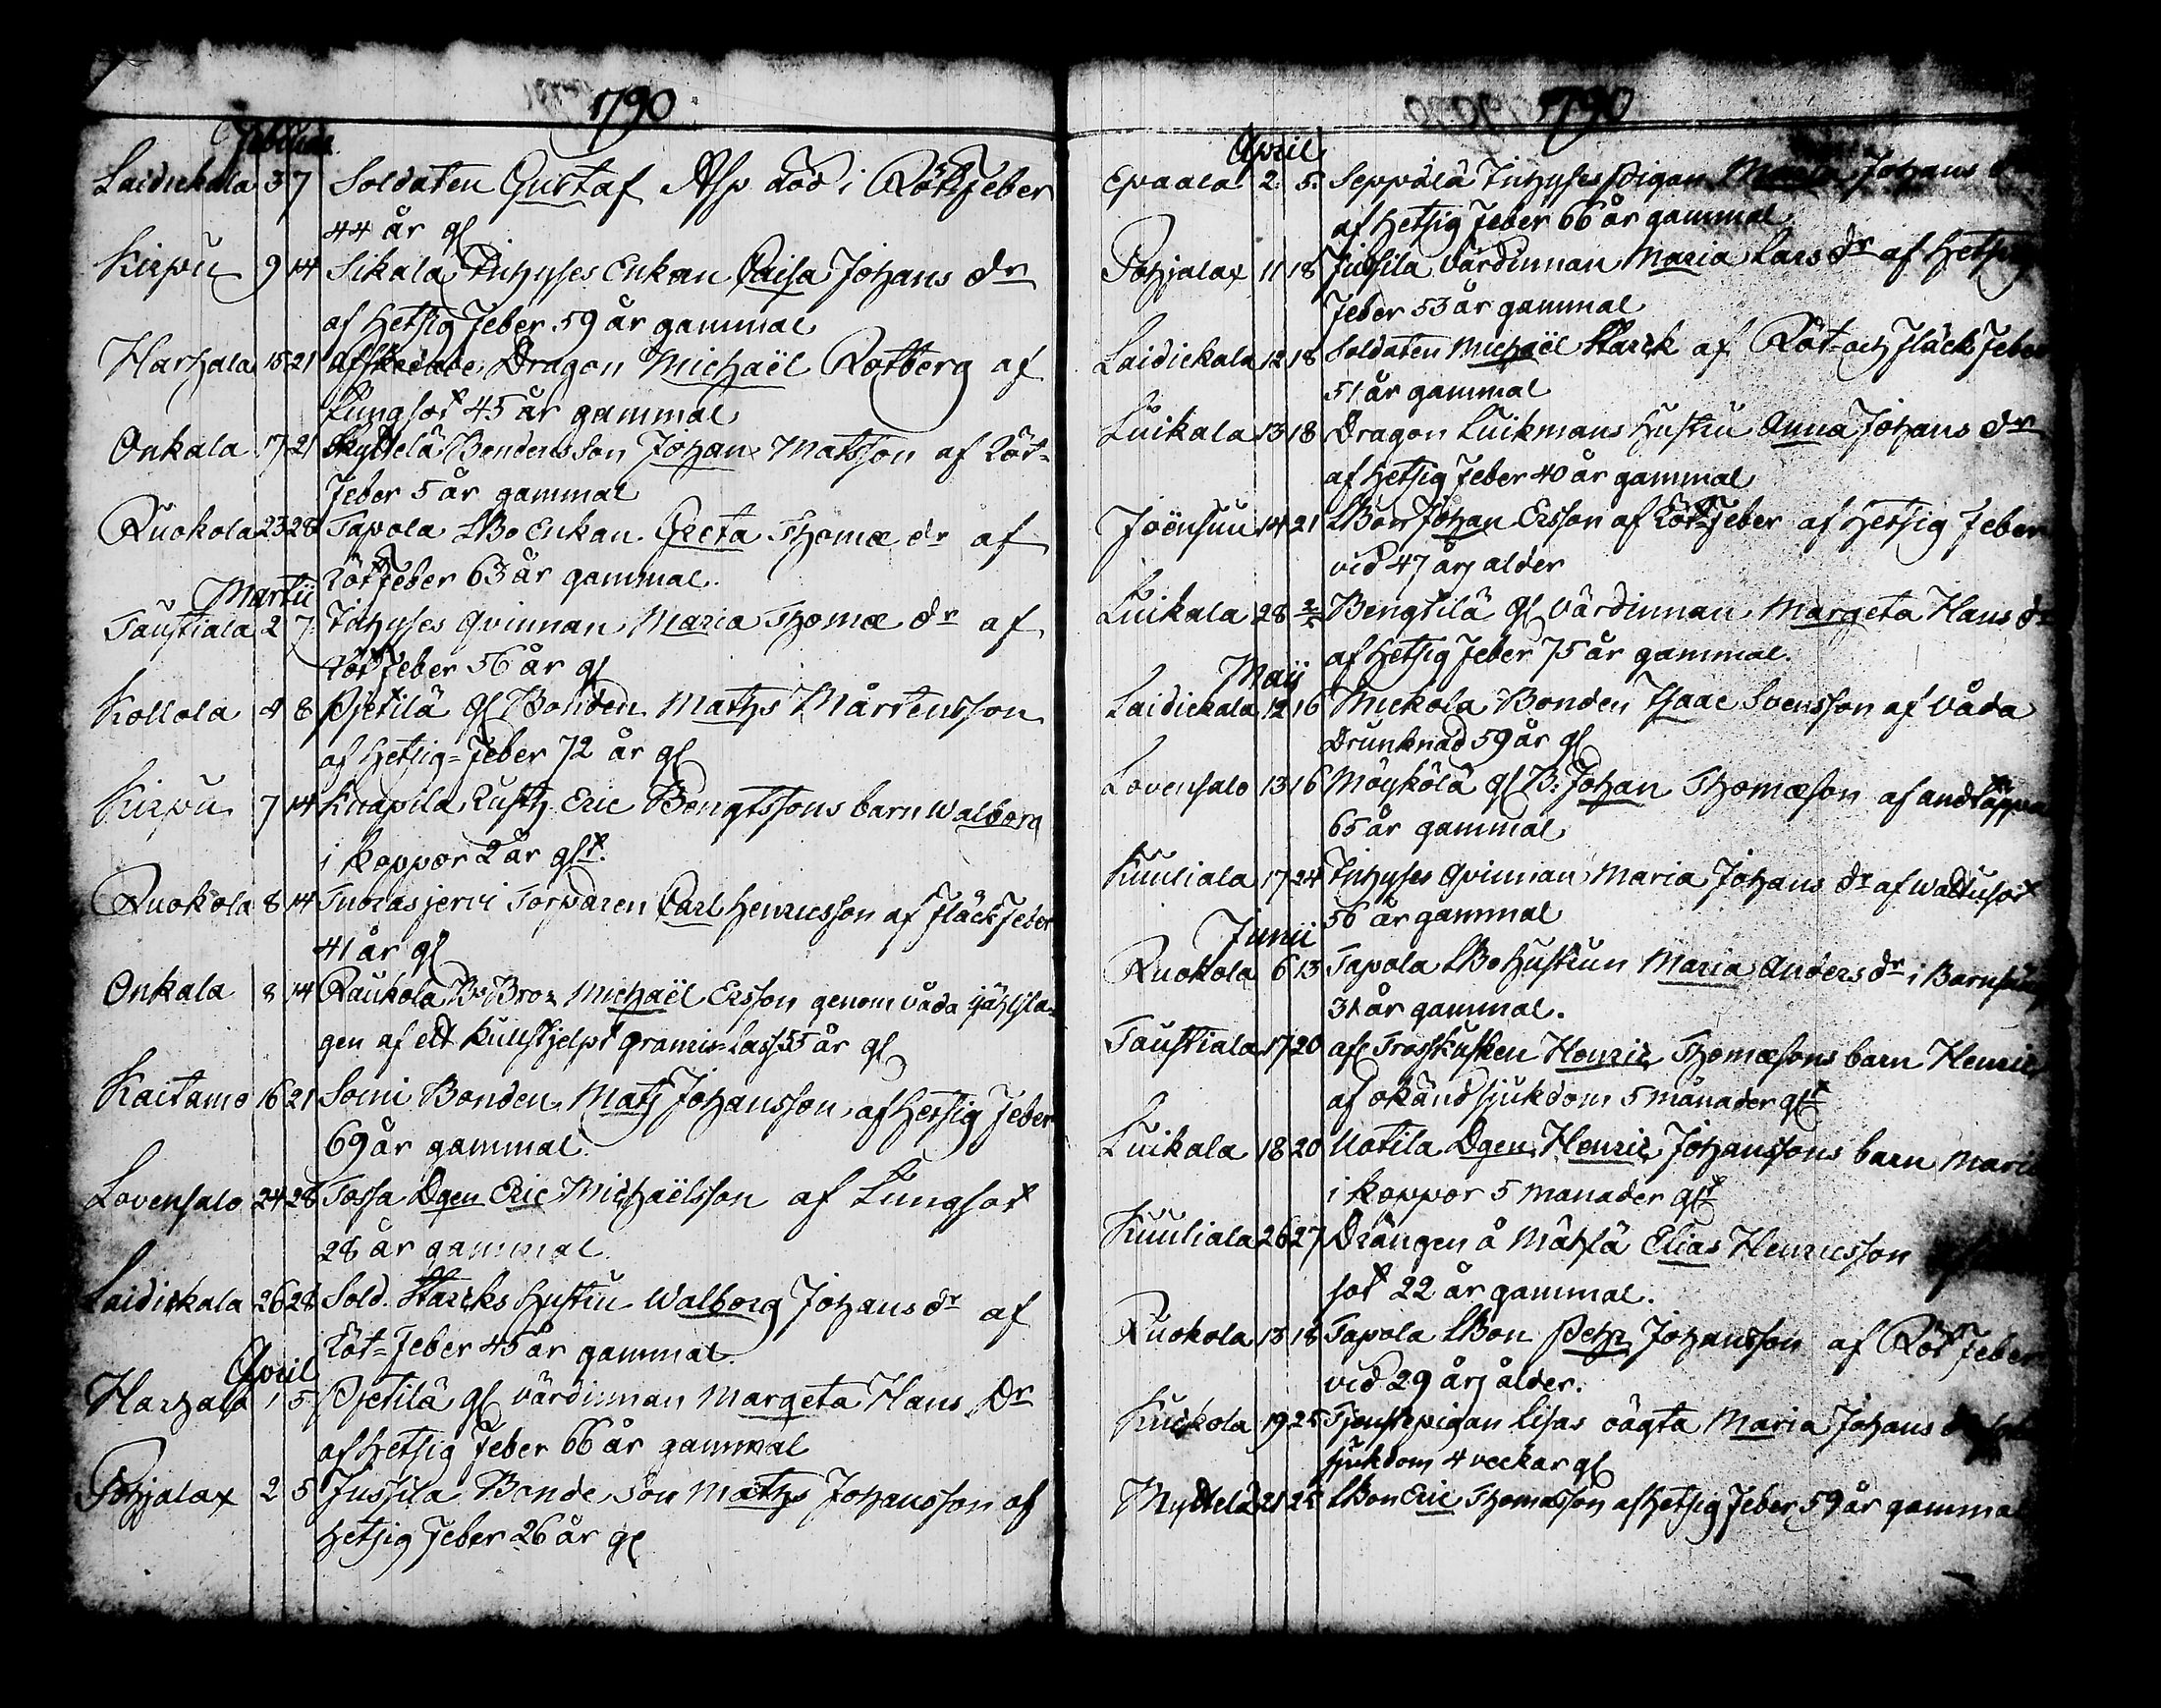 1790
Februar.
Laidickala 3 7 Soldaten Gustaf Asp död i Rötfeber
44 år gl
Kirpu 9 14 Sikala Inhyses Enkan Caisa Johans dr
af Hetsig Feber 59 år gammal
Harhala 15 21 afskedade Dragon Michaël Rotberg af
Lungsot 45 år gammal
Onkala 17 21 Skyttelä Bondens Son Johan Matsson af Röt-
feber 5 år gammal
Ruokola 23 28 Tapola LBo Enkan Greta Thomæ dr af
Rötfeber 63 år gammal
Martii
Taustiala 2 7 Inhyses Qvinnan Maria Thomæ dr af
Rötfeber 56 år gl
Kollola 4 8 Pjetilä gl Bonden Mathz Mårtensson
af Hetsig=Feber 72 år gl
Kirpu 7 14 Knapila Rusth. Eric Bengtssons barn Walborg
i Koppor 2 år glt.
Ruokola 8 14 Tuorasjervi Torparen Carl Henricsson af Fläckfeber
41 år gl
Onkala 8 14 Raukola Bs Bror Michaël Ersson genom våda ihjälsla-
gen af ett Kullstjelpt granris-lass 55 år gl
Kaitamo 16 21 Somi Bonden Mats Johansson af Hetsig Feber
69 år gammal
Lovensalo 24 28 Tossa Dgen Eric Michaëlsson af Lungsot
28 år gammal
Laidickala 26 28 Sold. Starcks Hustru Walborg Johans dr af
Röt=Feber 45 år gammal
April
Harhala 1 5 Pjetilä gl värdinnan Margeta Hans Dr
af Hetsig Feber 66 år gammal
Pohjalax 2 5 Jussila Bonde Son Mathz Johansson af
Hetsig Feber 26 år gl
1790
April
Epaala 2 5 Seppälä Inhyses Pigan Maria Johans dr
af Hetsig Feber 66 år gammal
Pohjalax 11 18 Jussila Värdinnan Maria Lars dr af Hetsig
Feber 53 år gammal
Laidickala 12 18 Soldaten Michaël Starck af Röt- och Fläck Feber
51 år gammal
Luikala 13 18 Dragon Luikmans Hustru Anna Johans dr
af Hetsig Feber 40 år gammal
Joënsuu 14 21 LBon Johan Ersson af Rötfeber af Hetsig Feber
vid 47 års alder
Luikala 28 2/5 Bengtilä gl Värdinnan Margeta Hans dr
af Hetsig Feber 75 år gammal.
Maij
Laidickala 12 16 Mickola Bonden Isaac Svensson af Våda
Drunknad 59 år gl
Lovensalo 13 16 Möykölä gl B. Johan Thomæson af andtäppa
65 år gammal
Kuuliala 17 24 Inhyses Qvinnan Maria Johans dr af Wattusot
56 år gammal
Junii
Ruokola 6 13 Tapola LBo Hustrun Maria Anders dr i Barnsäng
31 år gammal.
Taustiala 17 20 afl Trosskusken Henric Thomæsons barn Henric
af okänd sjukdom 5 månader glt
Luikala 18 20 Uotila Dgen Henric Johanssons barn Maria
i Koppor 5 manader glt
Kuuliala 26 27 Drängen å Mähilä Elias Henricsson
sot 22 år gammal.
Ruokola 13 18 Tapola LBon Pehr Johansson af Röt Feber
vid 29 års ålder.
Kuckola 19 25 Tjenstepigan Lisas oägta Maria Johans dr
sjukdom 4 veckar gl
Myttelä 21 25 LBon Eric Thomæsson af Hetsig Feber 59 år gammal